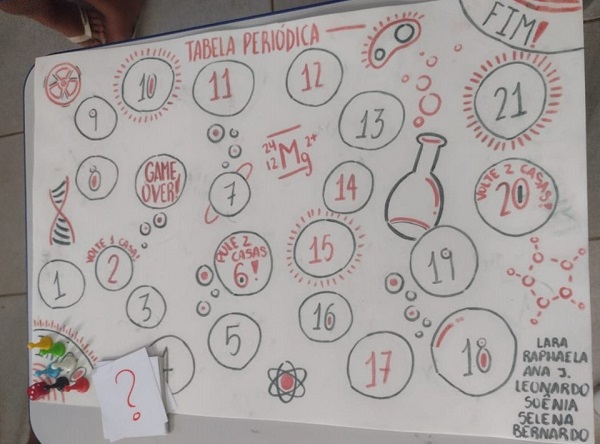 FIM!
TABELA PERIÓDICA
10
11
12
21
9
13
8
GAME
OVER!
24
12
Mg
2+
7
14
VOLTE 2 CASAS!
20
VOLTE 1 CASA!
2
PULE 2
CASAS
6!
15
19
1
3
16
5
4
17
18
?
LARA
RAPHAELA
ANA J.
LEONARDO
SUÊNIA
SELENA
BERNARDO